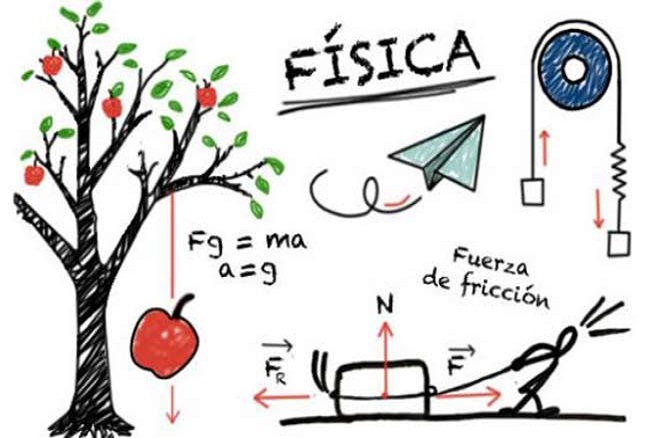 FÍSICA
Fg = ma
a=g
Fuerza
de fricción
N
F⃗R
F⃗